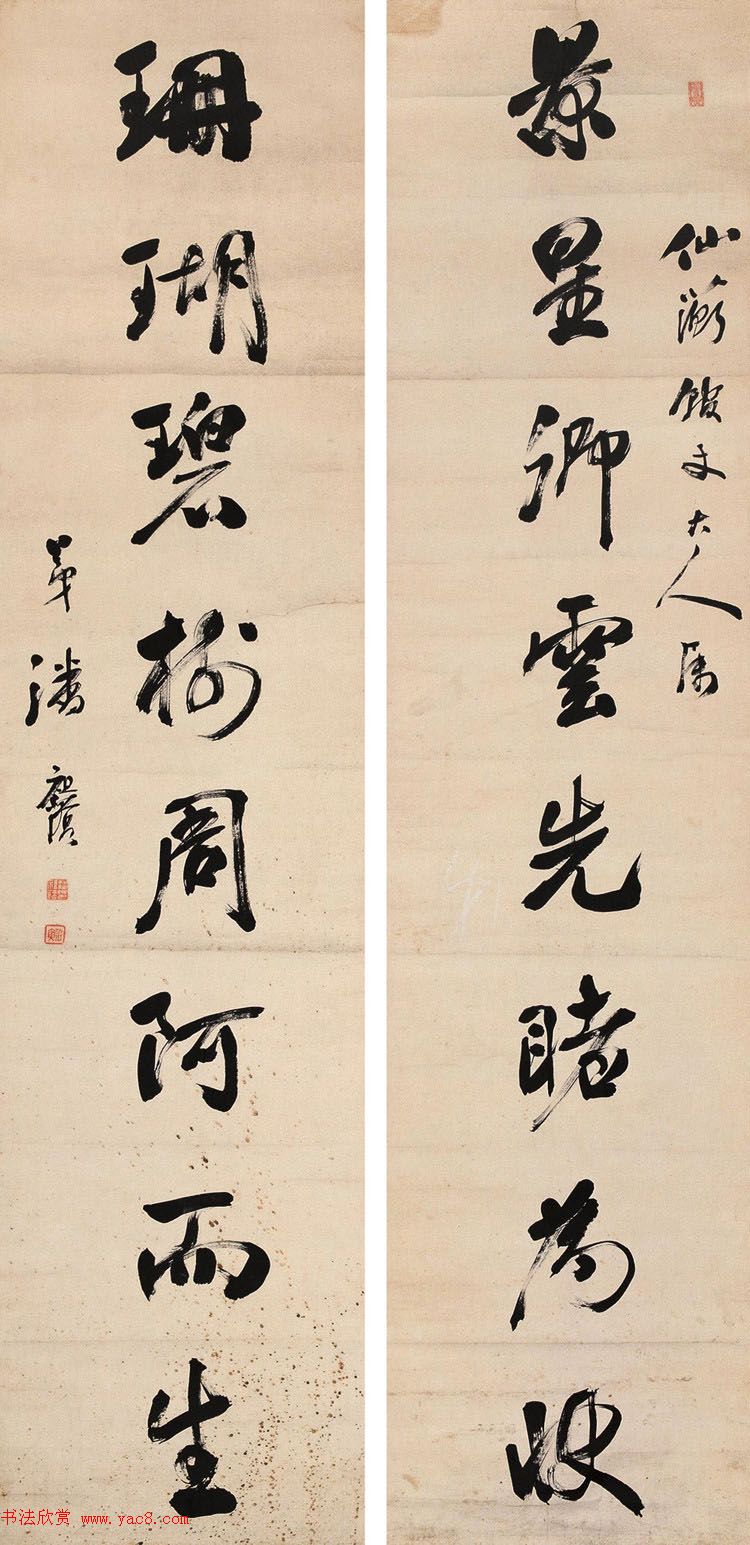 仙蘅館丈大人属
景星卿雲先睹為快
珊瑚碧樹周阿而生
弟潘祖蔭
书法欣赏 www.yac8.com